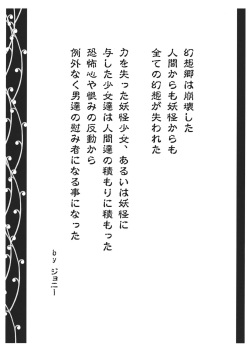 幻想郷は崩壊した
人間からも妖怪からも
全ての幻想が失われた
力を失った妖怪少女、あるいは妖怪に
与した少女達は人間達の積もりに積もった
恐怖心や恨みの反動から
例外なく男達の慰み者になる事になった
by ジョニー